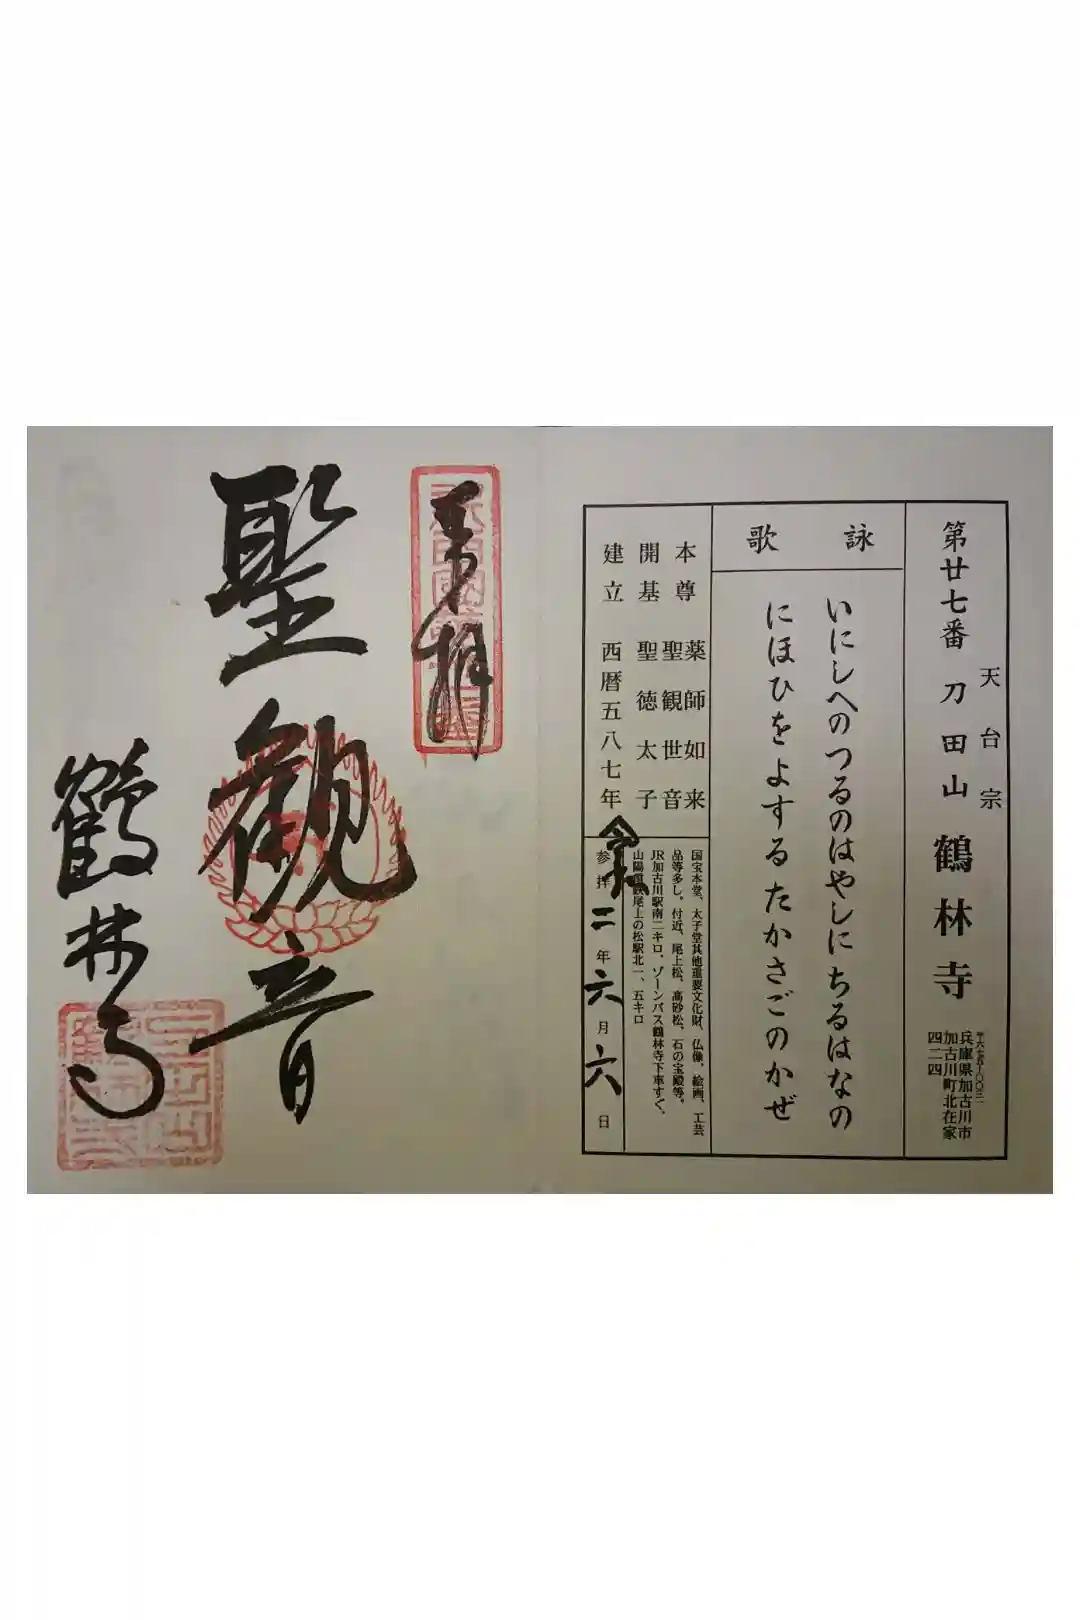 天台宗
第廿七番 刀田山 鶴林寺
兵庫県加古川市
加古川町北在家
四二四
詠歌
いにしへのつるのはやしにちるはなの
にほひをよするたかさごのかぜ
本尊 薬師如来
聖観世音
開基 聖徳太子
建立 西暦五八七年
国宝本堂、太子堂其他重要文化財、仏像、絵画、工芸
品等多し。付近、尾上松、高砂松、石の宝殿等。
JR加古川駅南二キロ、ゾーンバス鶴林寺下車すぐ。
山陽電鉄尾上の松駅北一、五キロ
参拝 令和二年六月六日
奉拝
聖観音
鶴林寺